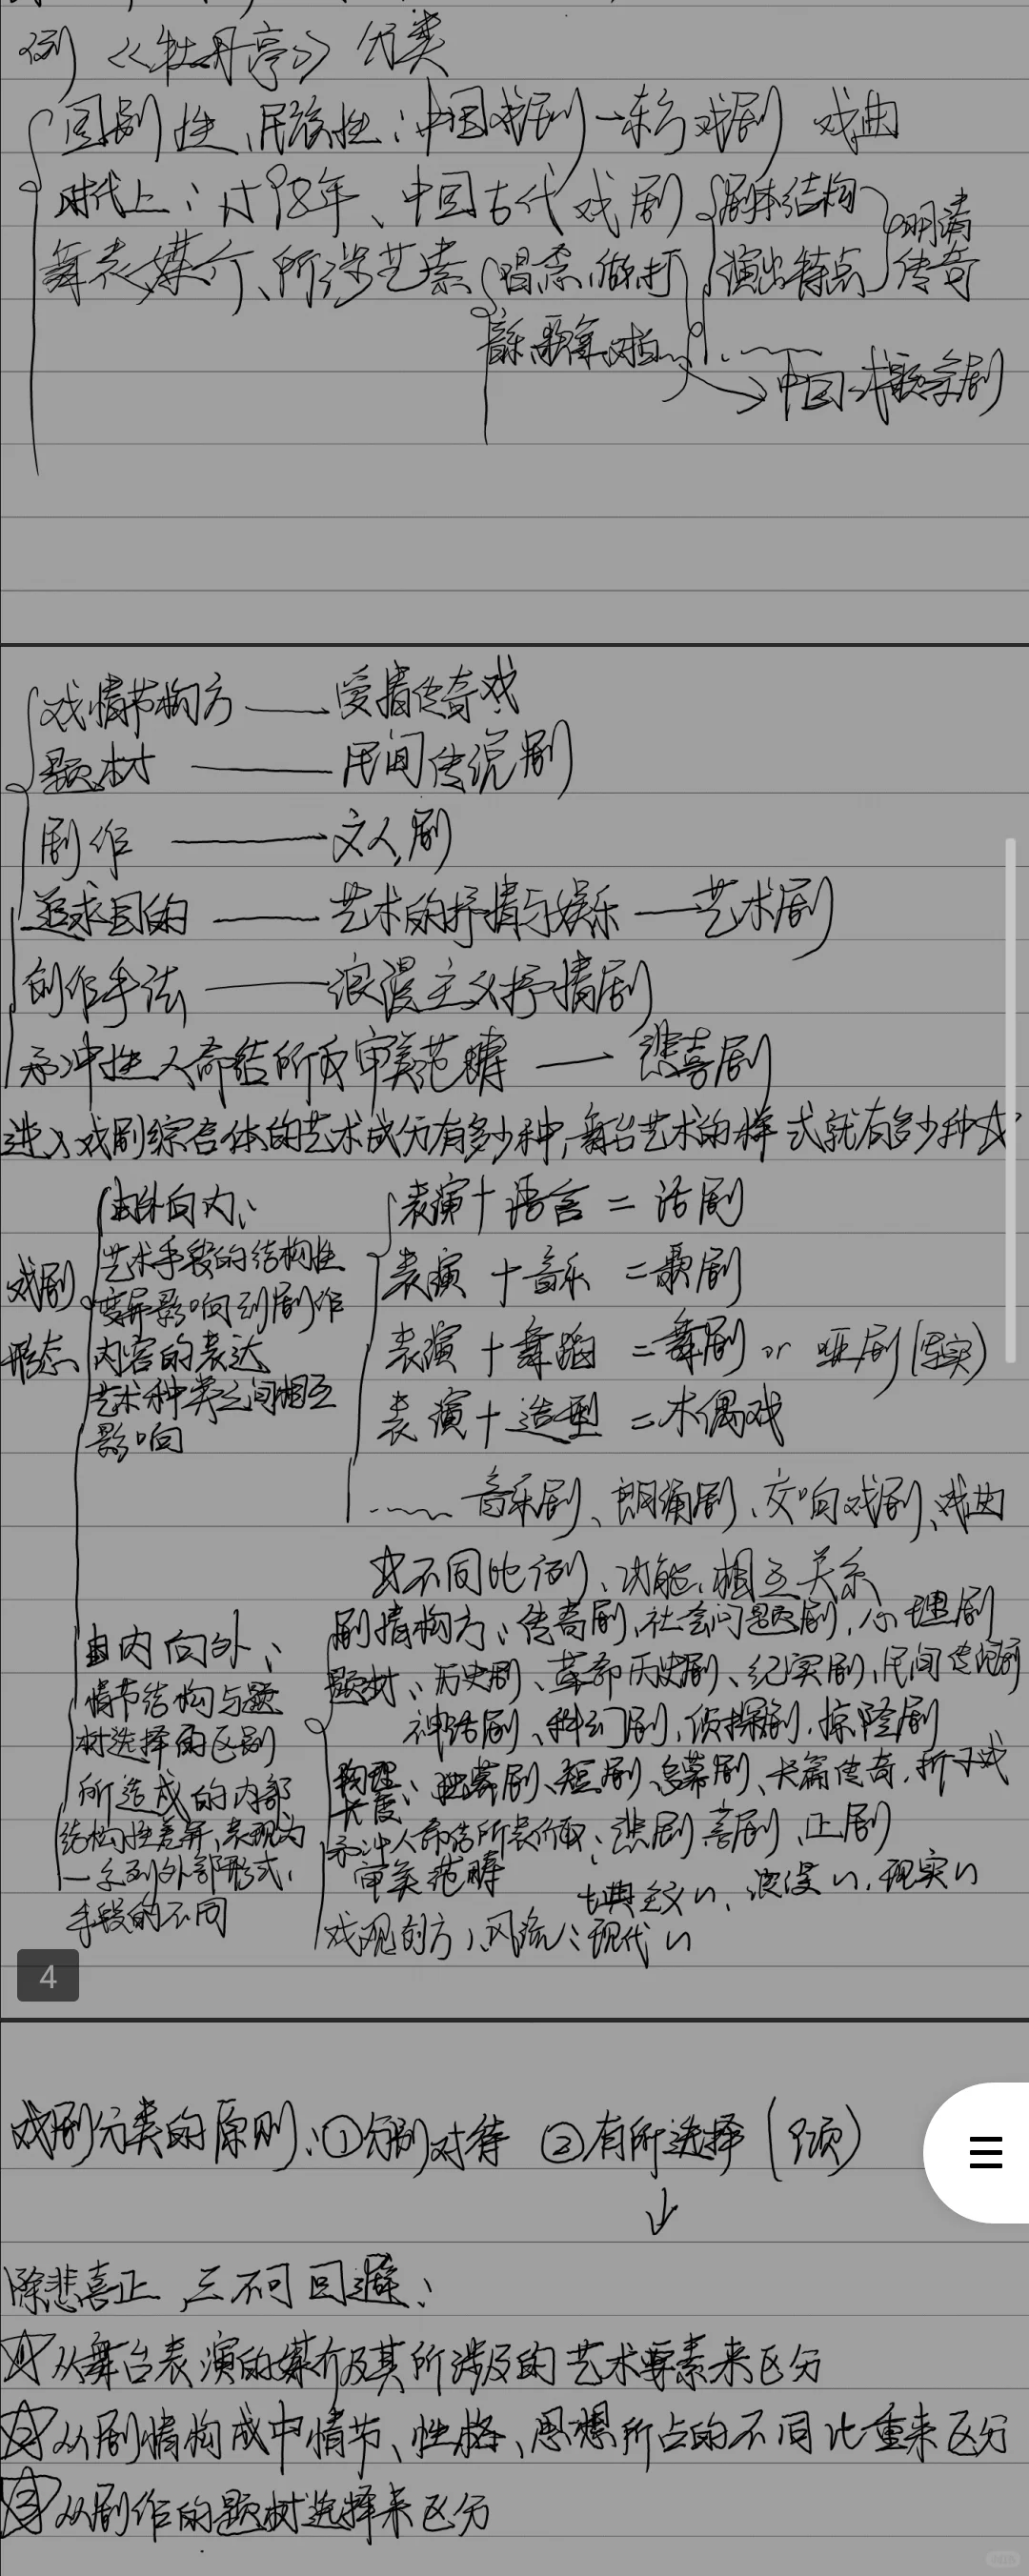 例《牡丹亭》分类
国别性、民族性:中国戏剧—东方戏剧 戏曲
时代上:1598年、中国古代戏剧 剧体结构 明清
舞表媒介、所涉艺素 唱念做打 演出特点 传奇
音乐歌舞对白 …… → 中国式歌舞剧
戏情节构方 —— 爱情传奇戏
题材 —— 民间传说剧
剧作 —— 文人剧
追求目的 —— 艺术的抒情与娱乐 — 艺术剧
创作手法 —— 浪漫主义抒情剧
矛冲性人命结所反审美范畴 — 悲喜剧
进入戏剧综合体的艺术成分有多少种,舞台艺术的样式就有多少种式
戏剧形态
由外向内:
艺术手段的结构性
变异影响到剧作
内容的表达
艺术种类之间相互
影响
表演+语言=话剧
表演+音乐=歌剧
表演+舞蹈=舞剧 or 哑剧(写实)
表演+造型=木偶戏
…… 音乐剧、朗诵剧、交响戏剧、戏曲
不同比例、功能、相互关系
由内向外:
情节结构与题
材选择的区别
所造成的内部
结构性差异,表现为
一系列外部形式、
手段的不同
剧情构方:传奇剧、社会问题剧、心理剧
题材:历史剧、革命历史剧、纪实剧、民间传说剧
神话剧、科幻剧、侦探剧、惊险剧
物理长度:独幕剧、短剧、多幕剧、长篇传奇、折子戏
矛冲人命结所表价取、审美范畴:悲剧 喜剧、正剧
戏观创方、风流:古典主义〃、浪漫〃、现实〃
现代〃
戏剧分类的原则:①分别对待 ②有所选择(9项)
↓
除悲喜正,三不可回避:
1 从舞台表演的媒介及其所涉及的艺术要素来区分
2 从剧情构成中情节、性格、思想所占的不同比重来区分
3 从剧作的题材选择来区分
4